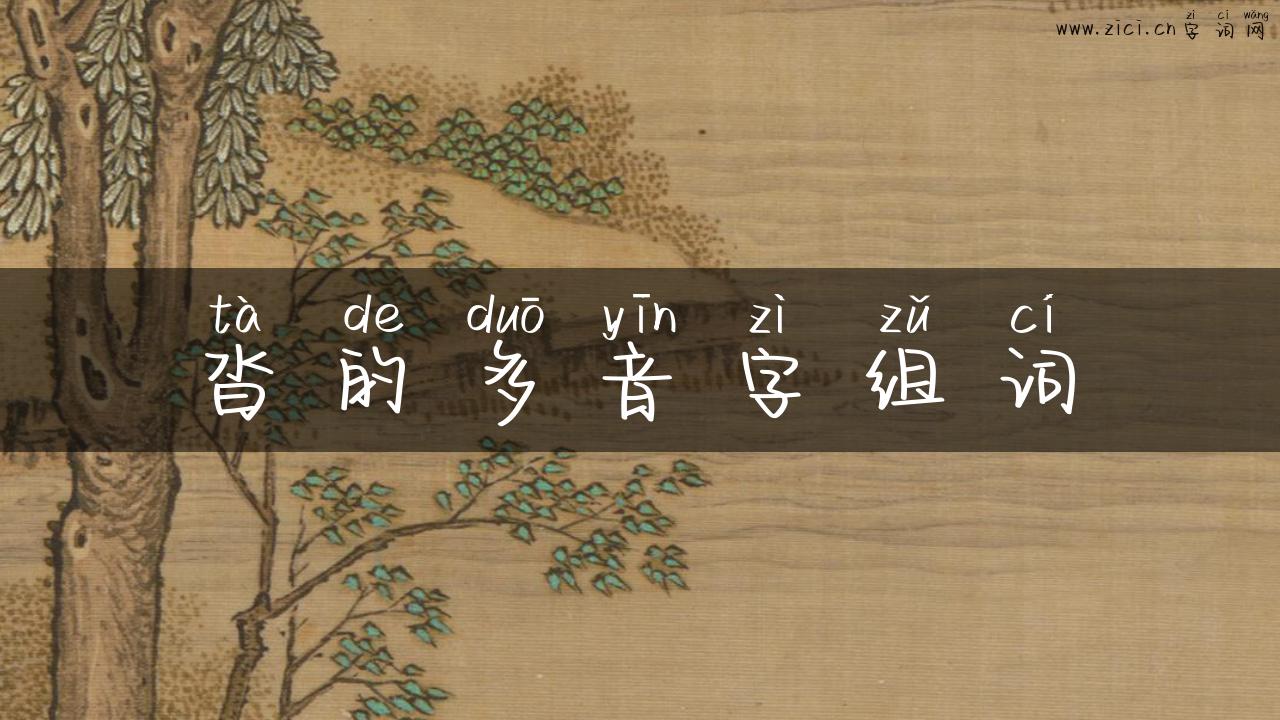 zì cí wǎng
www.zici.cn字词网
tà de duō yīn zì zǔ cí
沓的多音字组词